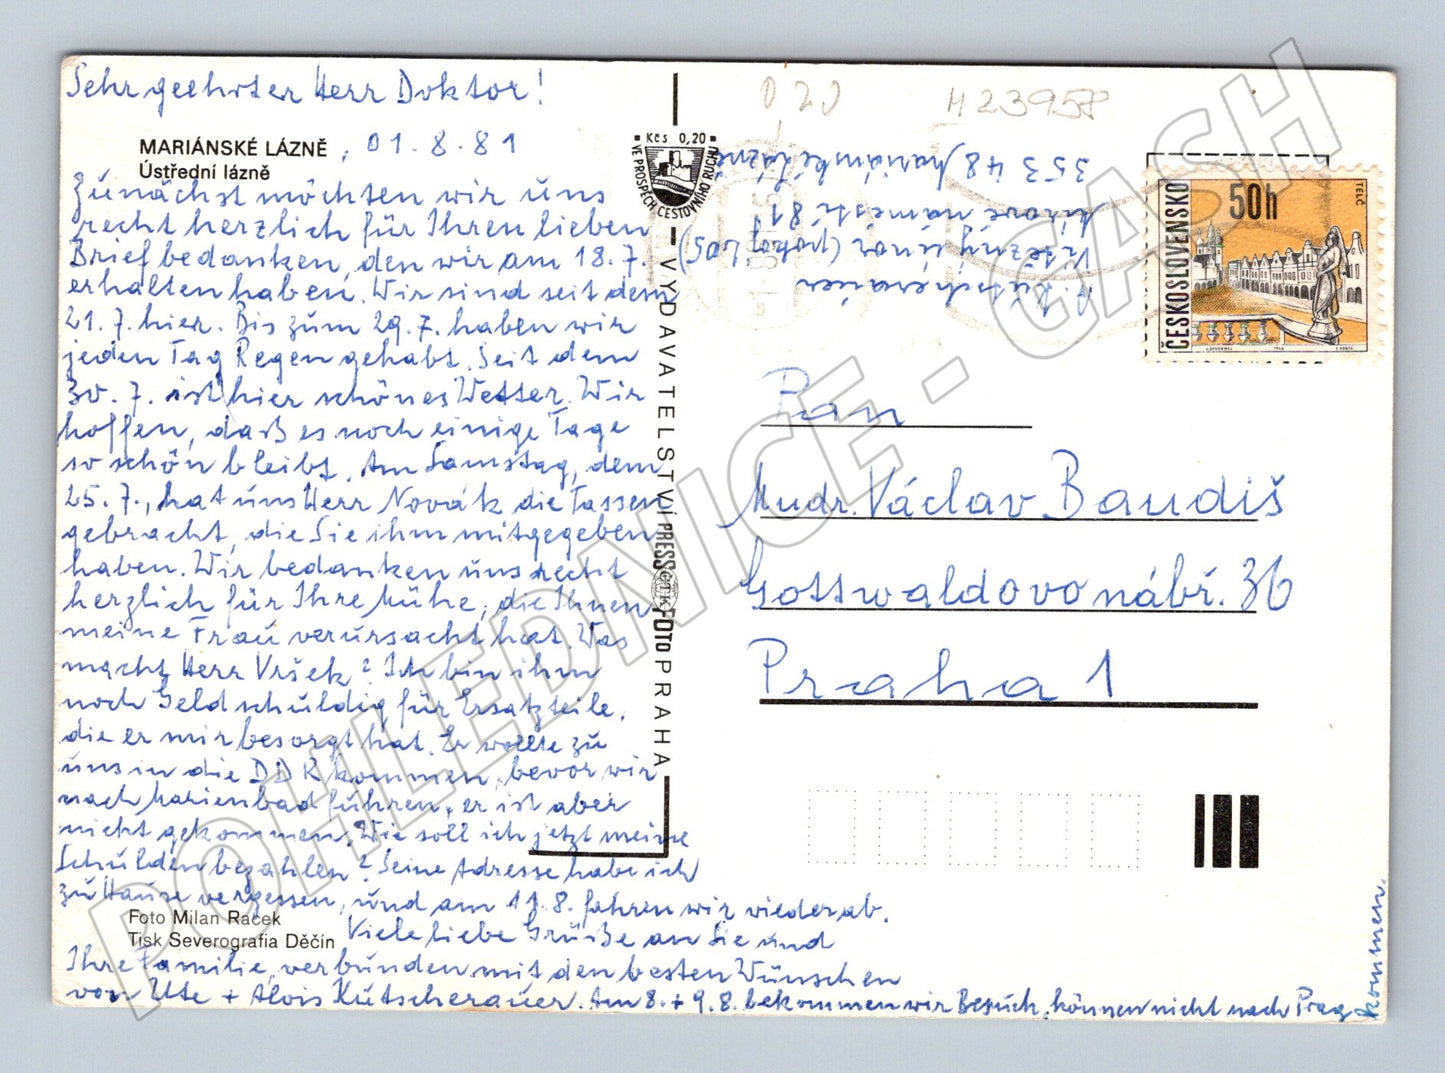 Sehr geehrter Herr Doktor!
MARIÁNSKÉ LÁZNĚ, 01.8.81
Ústřední lázně
Zunächst möchten wir uns
recht herzlich für Ihren lieben
Brief bedanken, den wir am 18.7.
erhalten haben. Wir sind seit dem
21.7. hier. Bis zum 29.7. haben wir
jeden Tag Regen gehabt. Seit dem
30.7. ist hier schönes Wetter. Wir
hoffen, daß es noch einige Tage
so schön bleibt. Am Samstag, dem
25.7., hat uns Herr Novák die Tassen
gebracht, die Sie ihm mitgegeben
haben. Wir bedanken uns recht
herzlich für Ihre Mühe, die Ihnen
meine Frau verursacht hat. Was
macht Herr Vršek? Ich bin ihm
noch Geld schuldig für Ersatzteile,
die er mir besorgt hat. Er wollte zu
uns in die DDR kommen, bevor wir
nach Marienbad führen, er ist aber
nicht gekommen. Wie soll ich jetzt meine
Schulden bezahlen? Seine Adresse habe ich
zu Hause vergessen, und am 11.8. fahren wir wieder ab.
Viele liebe Grüße an Sie und
Ihre Familie, verbunden mit den besten Wünschen
von Ute + Alois Kutscherauer. Am 8. + 9.8. bekommen wir Besuch, können nicht nach Prag
kommen.
Foto Milan Raček
Tisk Severografia Děčín
Kčs 0,20
VE PROSPĚCH CESTOVNÍHO RUCHU
VYDAVATELSTVÍ PRESSFOTO PRAHA
ČTK
020
M 23958
A. Kutscherauer
Vítězný únor (pokoj 405)
Mírové náměstí 81
353 48 Mariánské Lázně
ČESKOSLOVENSKO
50h
TELČ
Pan
Mudr. Václav Baudiš
Gottwaldovo nábř. 36
Praha 1
POHLEDNICE - CASH